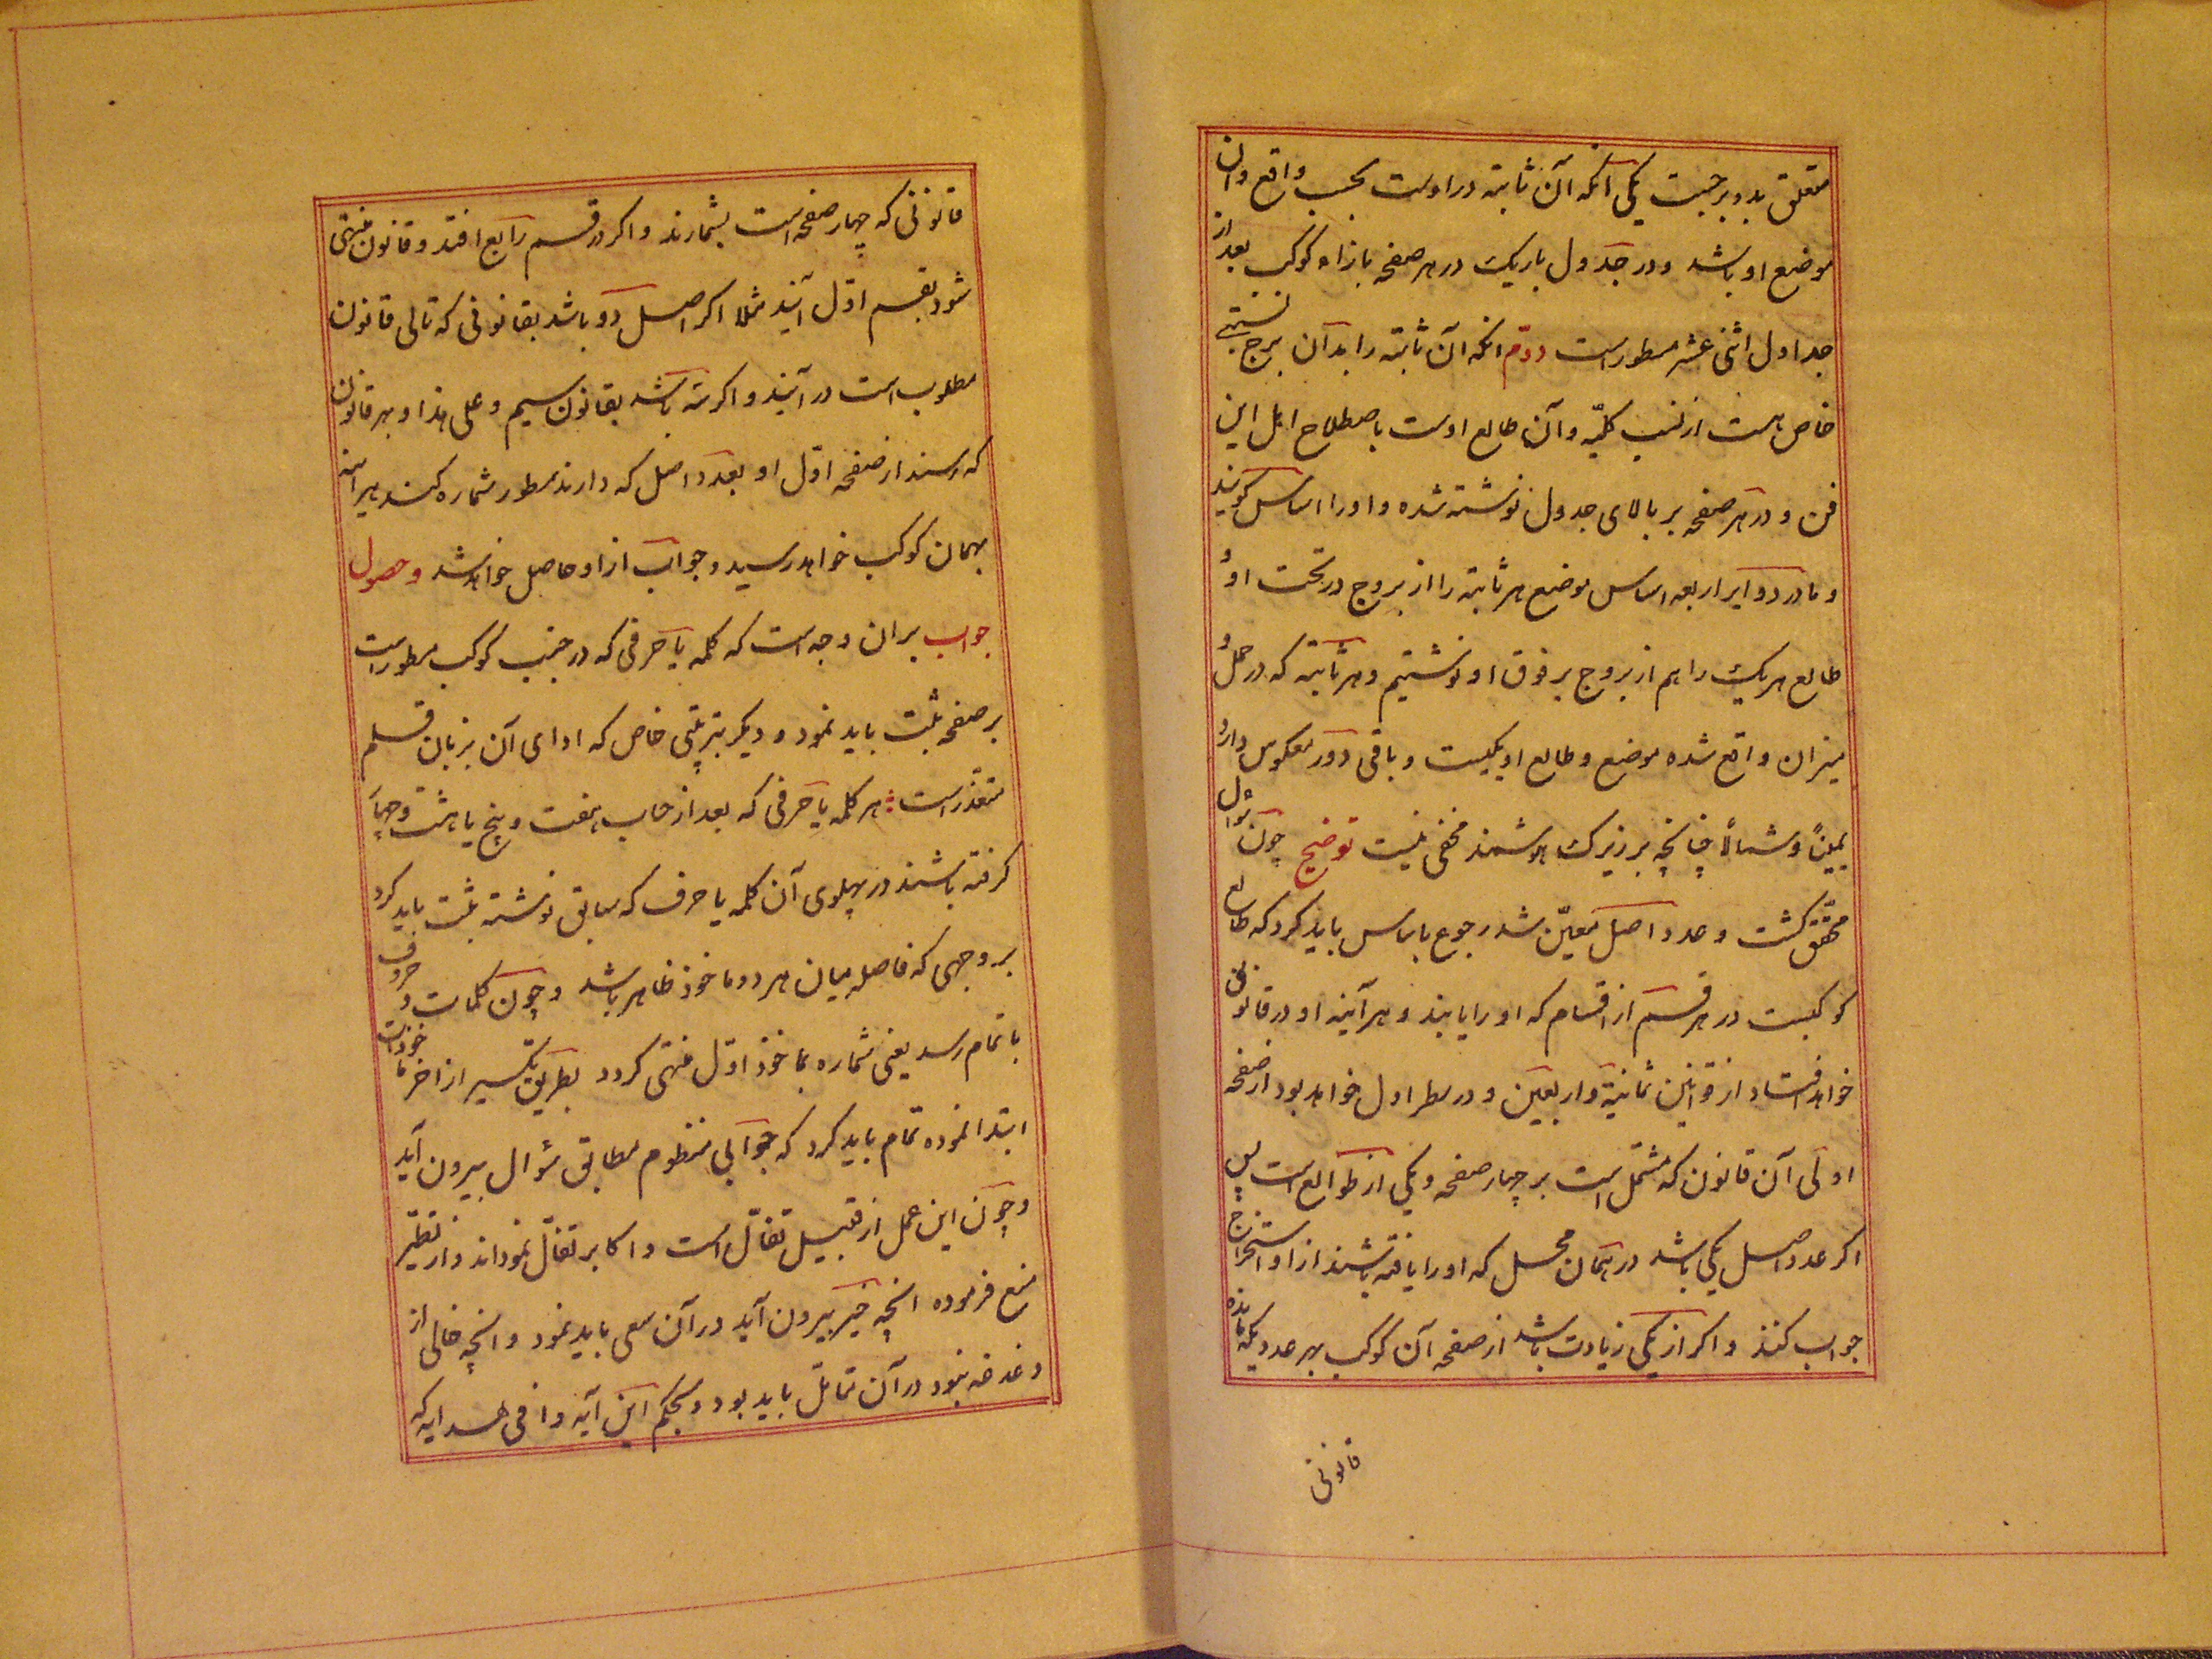 متعلق بدو برجست یکی آنکه آن ثابته در اوست بحسب واقع وان
موضع او باشد ودر جدول باریک در هر صفحه بازاء کوکب بعد از
جداول اثنی عشر مسطور است دوم انکه آن ثابته را بدان برج نسبتی
خاص هست از نسب کلیّه وآن طالع اوست باصطلاح اهل این
فن و در هر صفحه بر بالای جدول نوشته شده و اورا اساس کویند
و ما در دوایر اربعه اساس موضع هر ثابته را از بروج در تحت او و
طالع هر یک را هم از بروج بر فوق او نوشتیم و هر ثابته که در حمل و
میزان واقع شده موضع و طالع او یکیست و باقی دور معکوس دارد
یمیناً و شمالاً چنانچه بر زیرک هوشمند مخفی نیست توضیح چون سؤال
محقّق کشت و عدد اصل معیّن شد رجوع باساس باید کرد که طالع
کوکبست در هر قسم از اقسام که اورا یابند و هر آینه او در قانونی
خواهد افتاد از قوانین ثمانیة واربعین و در سطر اول خواهد بود از صفحه
اولی آن قانون که مشتمل است بر چهار صفحه و یکی از طوالع است پس
اکر عدد اصل یکی باشد در همان محل که اورا یافته باشند از او استخراج
جواب کنند و اکر از یکی زیادت باشد از صفحه آن کوکب بهر عددیکه مانده
قانونی
قانونی که چهار صفحه است بشمارند و اکر در قسم رابع افتد و قانون منتهی
شود بقسم اوّل آیند مثلا اکر اصل دو باشد بقانونی که تالی قانون
مطلوب است در آیند و اکر سه باشد بقانون سیم و علی هذا و بهر قانون
که رسند از صفحه اوّل او بعدد اصل که دارند سطور شماره کنند هر آینه
بهمان کوکب خواهد رسید و جواب از او حاصل خواهد شد و حصول
جواب بر ان وجه است که کلمه یا حرفی که در جنب کوکب مسطور است
بر صفحه ثبت باید نمود و دیکر بترتیبی خاص که ادای آن بزبان قلم
متعذّر است هر کلمه یا حرفی که بعد از حساب هفت و پنج یا هشت و چهار
کرفته باشند در پهلوی آن کلمه یا حرف که سابق نوشته ثبت باید کرد
بر وجهی که فاصله میان هر دو ماخوذ ظاهر باشد و چون کلمات و حروف
باتمام رسد یعنی شماره بماخوذ اوّل منتهی کردد بطریق تکسیر از اخر ماخوذات
ابتدا نموده تمام باید کرد که جوابی منظوم مطابق سؤال بیرون آید
و چون این عمل از قبیل تفاّل است و اکابر تفاّل نموداند و از تطیّر
منع فرموده انچه خیر بیرون آید در آن سعی باید نمود و انچه خالی از
دغدغه نبود در آن تماتل باید بود و بحکم این آیه وافی هدایه که